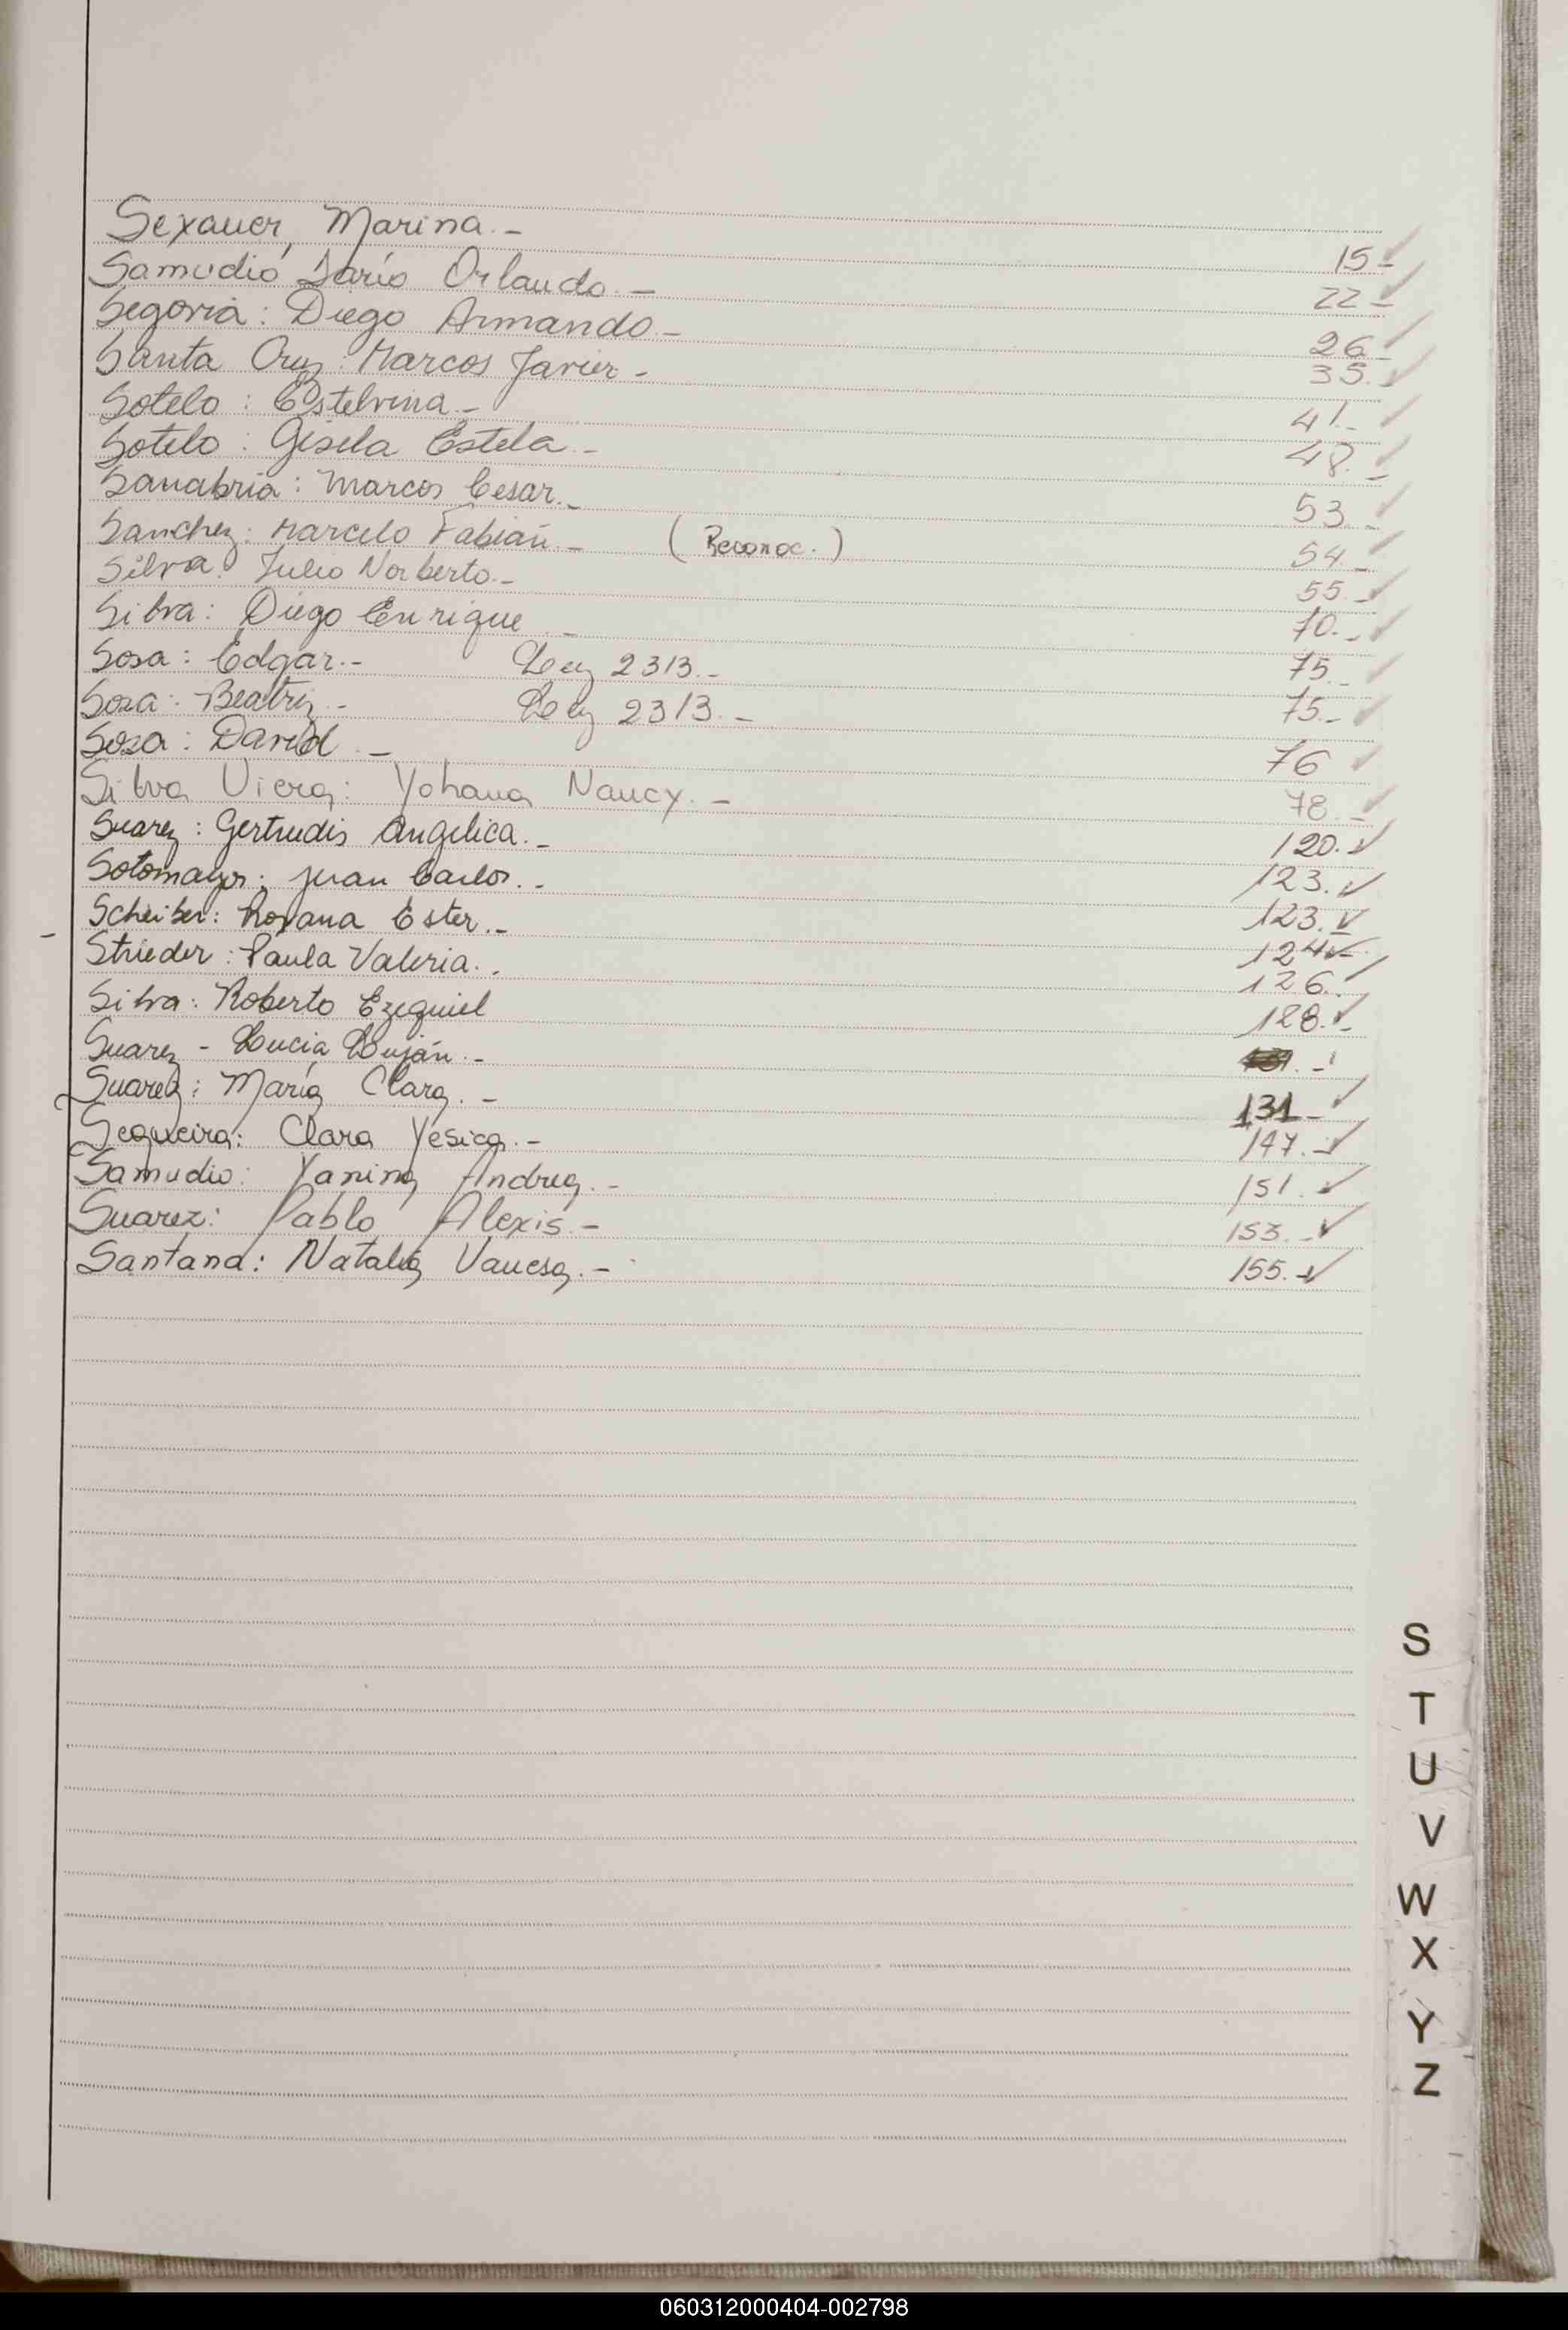 Sexauer, Marina.- 15-
Samudio Darío Orlando.- 22-
Segovia: Diego Armando.- 26-
Santa Cruz: Marcos Javier- 35.-
Sotelo: Estelvina.- 41.-
Sotelo: Gisela Estela.- 48.-
Sanabria: Marcos Cesar.- 53.-
Sanchez: Marcelo Fabián.- (Reconoc.) 54.-
Silva: Julio Norberto.- 55.-
Silva: Diego Enrique.- 70.-
Sosa: Edgar.- Ley 2313.- 75.-
Sosa: Beatriz.- Ley 2313.- 75.-
Sosa: David.- 76
Silva Viera: Yohana Nancy.- 78.-
Suarez: Gertrudis Angelica.- 120.-
Sotomayor: Juan Carlos.- 123.-
Scheiber: Roxana Ester.- 123.-
- Strieder: Paula Valeria.. 124-
Silva: Roberto Ezequiel 126.-
Suarez - Lucia Luján.- 128.-
Suarez: María Clara.- 131-
Sequeira: Clara Yésica.- 147.-
Samudio: Yanina Andrea.- 151.-
Suarez: Pablo Alexis.- 153.-
Santana: Natalia Vanesa.- 155.-
S
T
U
V
W
X
Y
Z
060312000404-002798